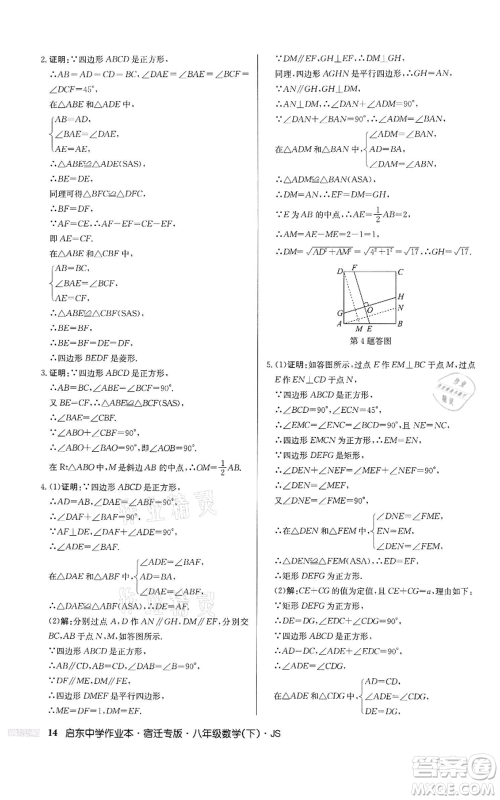 2. 证明:∵四边形 ABCD 是正方形,
∴AB=AD=CD=BC,∠BAE=∠BCF=
∠DCF=45°,
在△ABE 和△ADE 中,
AB=AD,
∠BAE=∠DAE,
AE=AE,
∴△ABE≌△ADE(SAS),
∴BE=DE,
同理可得△BFC≌△DFC,
∴BF=DF,
∵AF=CE,∴AF-EF=CE-EF,
即 AE=CF.
在△ABE 和△CBF 中,
AB=BC,
∠BAE=∠BCF,
AE=CF,
∴△ABE≌△CBF(SAS),
∴BE=BF,
∴BE=BF=DE=DF,
∴四边形 BEDF 是菱形.
3. 证明:∵四边形 ABCD 是正方形,
∴AB=BC,∠ABE=∠BCF=90°,
又 BE=CF,∴△ABE≌△BCF(SAS),
∴∠BAE=∠CBF.
∵∠ABO+∠CBF=90°,
∴∠ABO+∠BAO=90°,
即∠AOB=90°.
在 Rt△ABO 中,M 是斜边 AB 的中点,∴OM=1/2 AB.
4. (1)证明:∵四边形 ABCD 是正方形,
∴AD=AB,∠DAE=∠ABF=90°,
∴∠DAF+∠BAF=90°,
∵AF⊥DE,∴∠DAF+∠ADE=90°,
∴∠ADE=∠BAF.
在△DAE 和△ABF 中,
∠ADE=∠BAF,
AD=BA,
∠DAE=∠ABF,
∴△DAE≌△ABF(ASA),∴DE=AF.
(2)解:分别过点 A,D 作 AN∥GH,DM∥EF,分别交
BC,AB 于点 N,M,如答图所示.
∵四边形 ABCD 是正方形,
∴AB∥CD,∠DAM=∠B=90°,
∴四边形 DMEF 是平行四边形,
∴ME=DF=1,DM=EF.
∵DM∥EF,GH⊥EF,∴DM⊥GH.
同理,四边形 AGHN 是平行四边形,
∴GH=AN,AN∥GH.
∴AN⊥DM,∴∠DAN+∠ADM=90°,
∵∠DAN+∠BAN=90°,∴∠ADM=∠BAN.
在△ADM 和△BAN 中,
∠ADM=∠BAN,
AD=BA,
∠DAM=∠B,
∴△ADM≌△BAN(ASA),∴DM=AN.
∵∠DAM=90°,∴DM=√(AD²+AM²).
∵E 为 AB 的中点,∴AE=1/2 AB=2,
∴AM=AE-ME=2-1=1,
∴DM=√(AD²+AM²)=√(4²+1²)=√17,∴GH=√17.
D F C
G
H
N
A M E B
第 4 题答图
5. (1)证明:如答图所示,过点 E 作 EM⊥BC 于点 M,过
点 E 作 EN⊥CD 于点 N,
∵四边形 ABCD 是正方形,
∴∠BCD=90°,∠ECN=45°,
∴∠EMC=∠ENC=∠BCD=90°,且 NE=NC,
∴四边形 EMCN 为正方形,
∵四边形 DEFG 是矩形,
∴∠DEN+∠NEF=90°,∠NEF+∠MEF=90°,
∴∠DEN=∠MEF,
又∠DNE=∠FME=90°,
在△DEN 和△FEM 中,
∠DNE=∠FME,
EN=EM,
∠DEN=∠FEM,
∴△DEN≌△FEM(ASA),∴ED=EF,
∴矩形 DEFG 为正方形.
(2)解:CE+CG 的值为定值,且 CE+CG=a,理由如下:
∵矩形 DEFG 为正方形,
∴DE=DG,∠EDC+∠CDG=90°,
∵四边形 ABCD 是正方形,
∴AD=DC,∠ADE+∠EDC=90°,
∴∠ADE=∠CDG,
在△ADE 和△CDG 中,
AD=CD,
∠ADE=∠CDG,
DE=DG,
14 启东中学作业本·宿迁专版·八年级数学(下)·JS